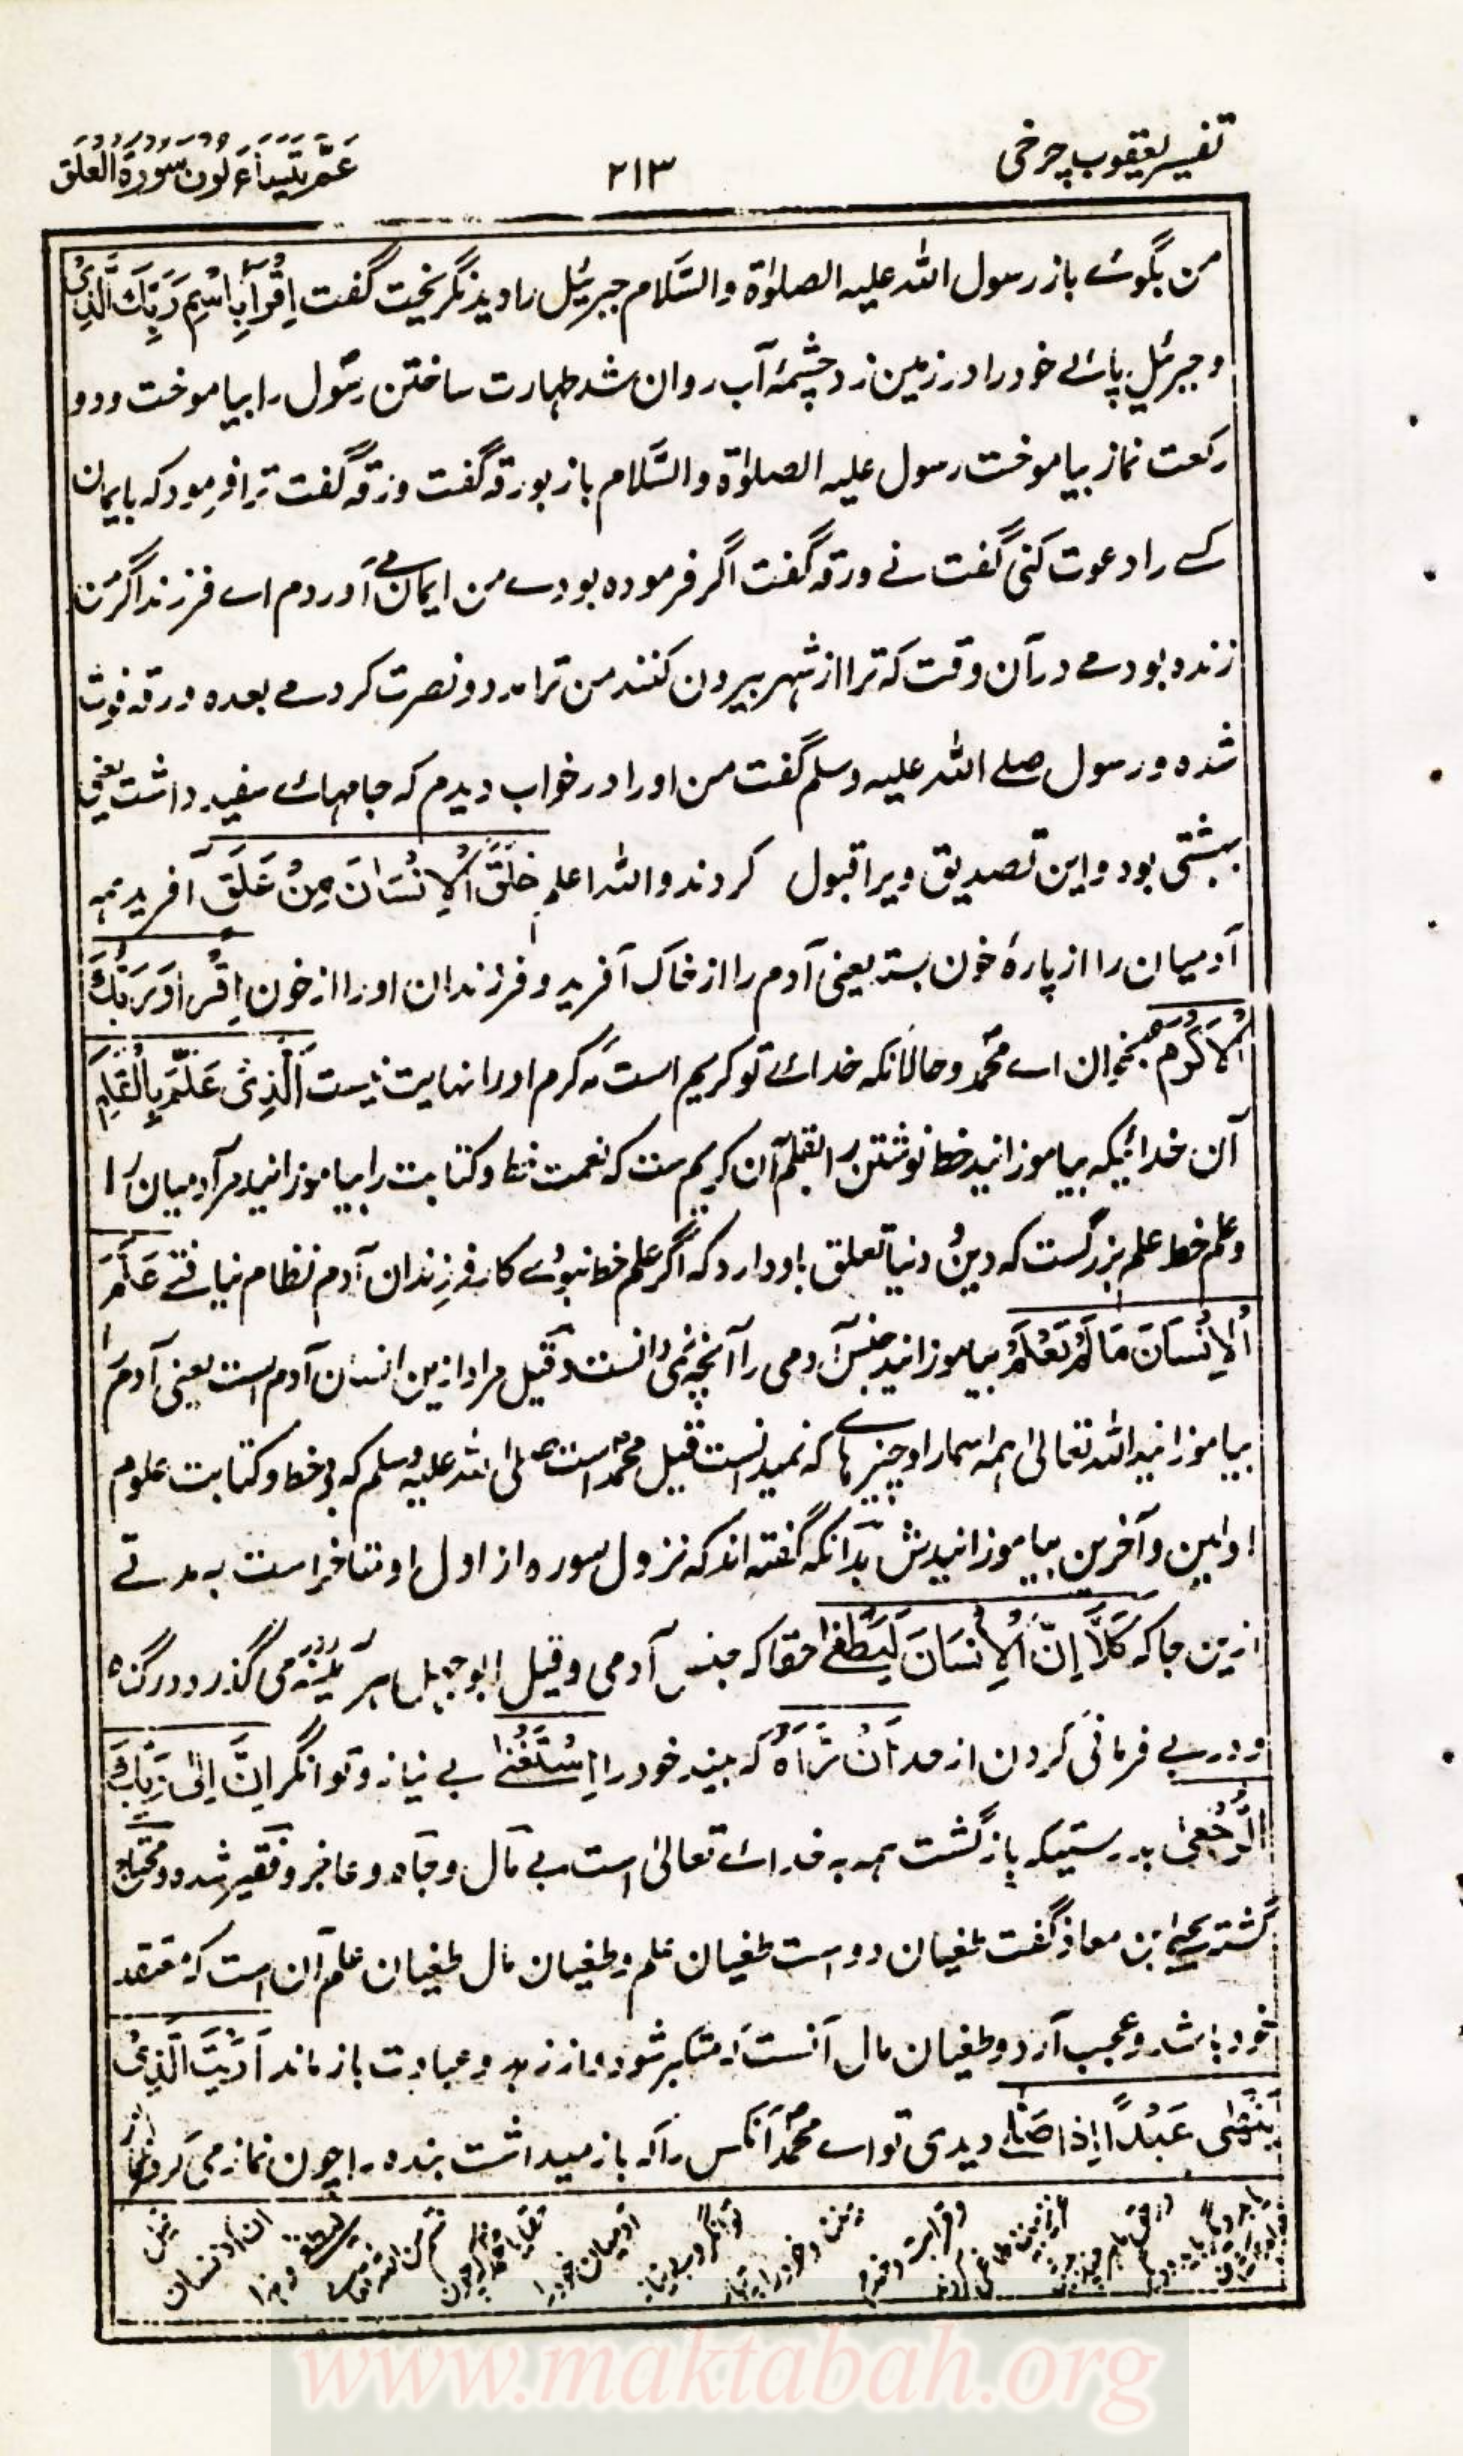 تفسیر یعقوب چرخی
۲۱۳
عَمَّ یَتَسَآءَلُوْنَ سُوْرَۃُ الْعَلَق
من بگوئے باز رسول اللہ علیہ الصلوٰۃ والسَّلام جبرئیل را دید نگریخت گفت اِقْرَأْ بِاسْمِ رَبِّكَ الَّذِیْ
و جبرئیل پائے خود را در زمین زد چشمۂ آب روان شد طہارت ساختن رسول را بیاموخت و دو
رکعت نماز بیاموخت رسول علیہ الصلوٰۃ والسَّلام باز بورقہ گفت ورقہ گفت ترا فرمود کہ بایمان
کسے را دعوت کنی گفت نے ورقہ گفت اگر فرمودہ بودے من ایمان مے آوردم اے فرزند اگر من
زندہ بودمے در آن وقت کہ ترا از شہر بیرون کنند من ترا مدد و نصرت کردمے بعدہ ورقہ فوت
شدہ و رسول صلے اللہ علیہ وسلم گفت من او را در خواب دیدم کہ جامہائے سفید داشت یعنی
بہشتی بود و این تصدیق ویرا قبول کردند واللہ اعلم خَلَقَ الْاِنْسَانَ مِنْ عَلَقٍ آفرید ہمہ
آدمیان را از پارۂ خون بستہ یعنی آدم را از خاک آفرید و فرزندان او را از خون اِقْرَأْ وَرَبُّكَ
الْاَکْرَمُ بخوان اے محمّد و حالانکہ خدائے تو کریم است کہ کرم او را نہایت نیست الَّذِیْ عَلَّمَ بِالْقَلَمِ
آن خدائیکہ بیاموزانید خط نوشتن را بقلم آن کریم ست کہ نعمت خط و کتابت را بیاموزانید مر آدمیان را
و علم خط علم بزرگست کہ دین و دنیا تعلق باو دارد کہ اگر علم خط نبودے کار فرزندان آدم نظام نیافتے عَلَّمَ
الْاِنْسَانَ مَا لَمْ یَعْلَمْ بیاموزانید جنس آدمی را آنچہ نمی دانست و قیل مراد ازین انسان آدم است یعنی آدم را
بیاموزانید اللہ تعالیٰ ہمہ اسما را و چیزہائے کہ نمیدانست قیل محمد است صلی اللہ علیہ وسلم کہ بی خط و کتابت علوم
اولین و آخرین بیاموزانیدش بدانکہ گفتہ اند کہ نزول سورہ از اول او متاخر است بہ مدتے
ازین جا کہ کَلَّا اِنَّ الْاِنْسَانَ لَیَطْغٰی حقا کہ جنس آدمی و قیل ابو جہل ہر آئینہ می گذرد در گناہ
و در بے فرمانی کردن از حد اَنْ رَّاٰهُ کہ بیند خود را اسْتَغْنٰی بے نیاز و توانگر اِنَّ اِلٰی رَبِّكَ
الرُّجْعٰی بدرستیکہ بازگشت ہمہ بہ خدائے تعالیٰ است بے مال و جاہ و عاجز و فقیر شدہ و محتاج
گشتہ یحییٰ بن معاذ گفت طغیان دو است طغیان علم و طغیان مال طغیان علم آن است کہ معتقد
خود باشد و عجب آرد و طغیان مال آنست کہ متکبر شود و از زہد و عبادت باز ماند اَرَءَیْتَ الَّذِیْ
یَنْهٰی عَبْدًا اِذَا صَلّٰی دیدی تو اے محمّد آنکس را کہ باز میداشت بندہ را چون نماز می کرد
www.maktabah.org